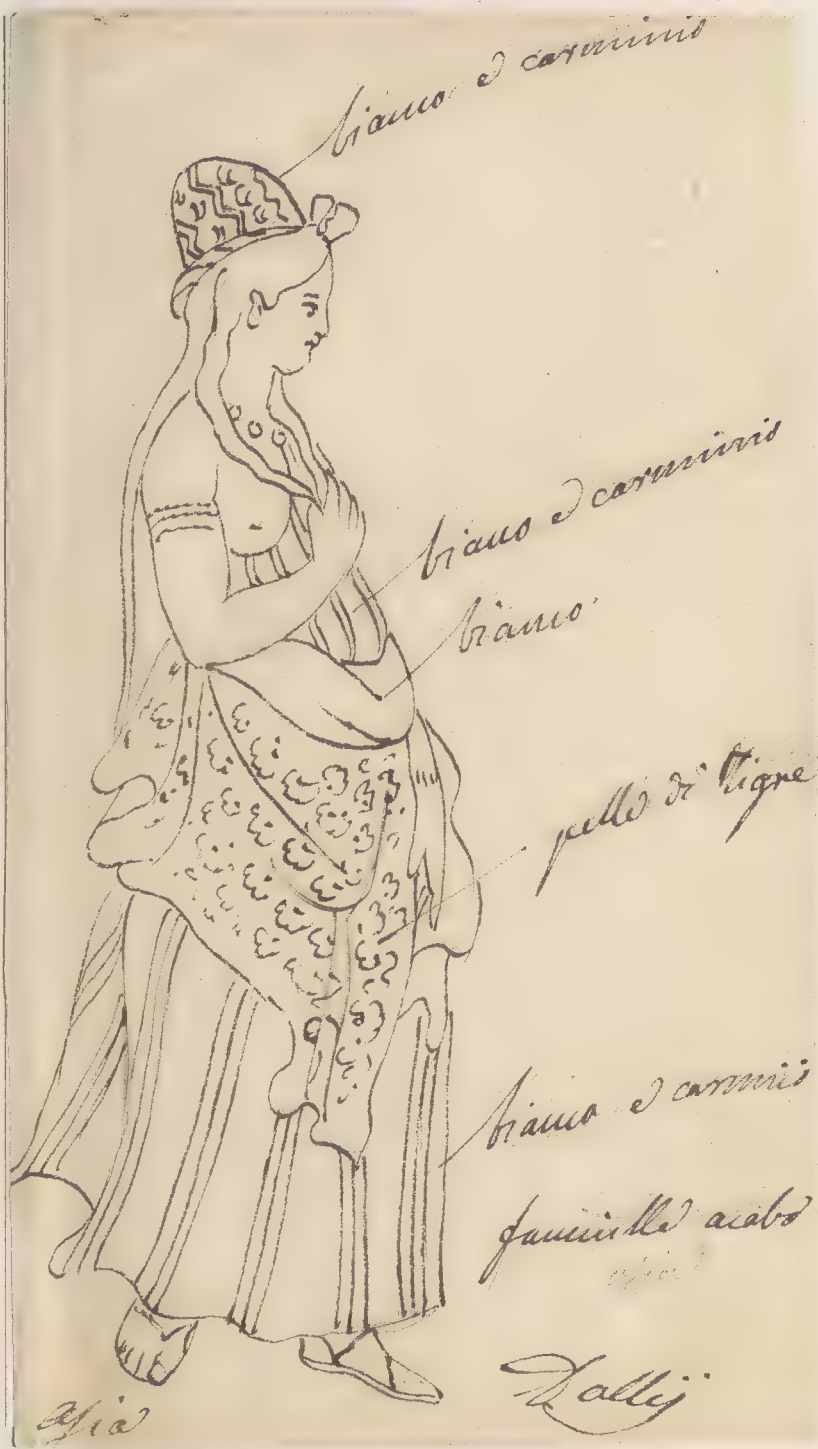 bianco e carminio
bianco e carminio
bianco
pelle di Tigre
bianco e carminio
fanciulla araba
asia